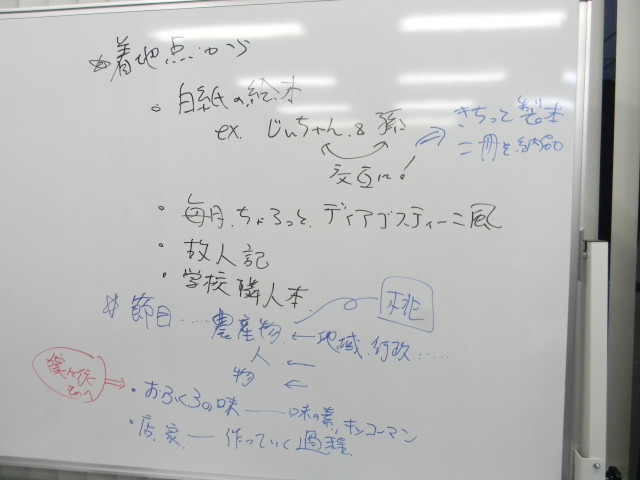 ☆着地点から
・白紙の絵本
ex. じいちゃん & 孫
交互に!
きちっと製本
二冊を納品
・毎月、ちょろっと、ディアゴスティーニ風
・故人記
・学校 隣人本
☆節目……農産物 ← 地域、行政……
桃
人 ←
物 ←
・おふくろの味 —— 味の素、キッコーマン
・店、家 — 作っていく過程